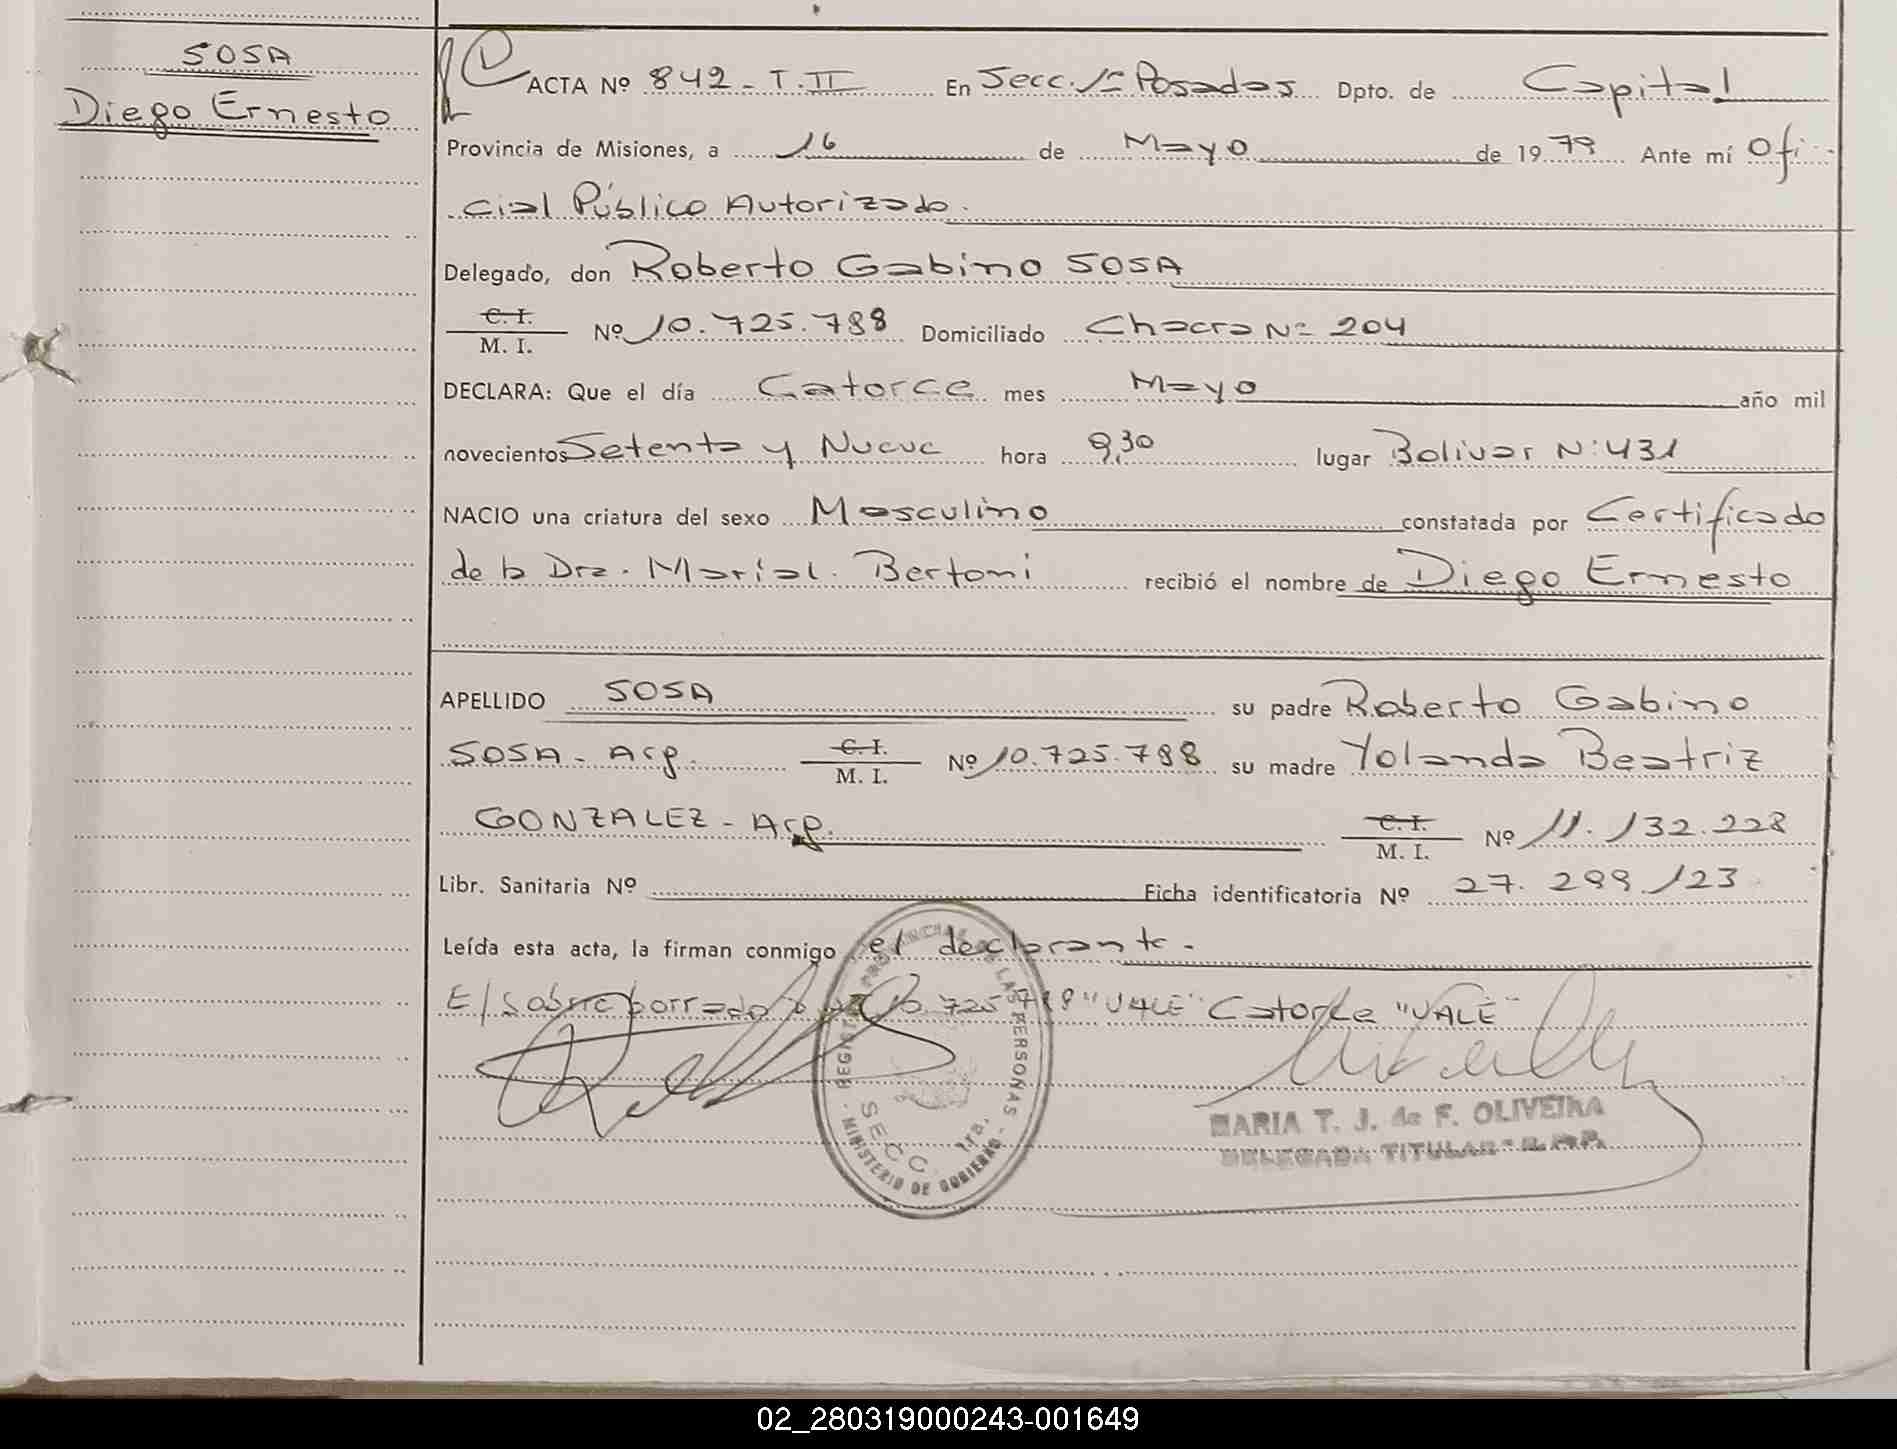 SOSA
Diego Ernesto
ACTA Nº 842 - T. II En Secc. 1ª Posadas Dpto. de Capital
Provincia de Misiones, a 16 de Mayo de 1979 Ante mí Ofi-
cial Público Autorizado.
Delegado, don Roberto Gabino SOSA
C. I.
M. I. Nº 10.725.788 Domiciliado Chacra Nº 204
DECLARA: Que el día Catorce mes Mayo año mil
novecientos Setenta y Nueve hora 9,30 lugar Bolivar Nº 431
NACIO una criatura del sexo Masculino constatada por Certificado
de la Dra. Maria L. Bertoni recibió el nombre de Diego Ernesto
APELLIDO SOSA su padre Roberto Gabino
SOSA - Arg. C. I. M. I. Nº 10.725.788 su madre Yolanda Beatriz
GONZALEZ - Arg. C. I. M. I. Nº 11.132.228
Libr. Sanitaria Nº Ficha identificatoria Nº 27.299.123
Leída esta acta, la firman conmigo el declarante.
E/ Sobre borrado 10.725.788 "VALE" Catorce "VALE"
REGISTRO PROVINCIAL DE LAS PERSONAS
SECC. 1ra.
MINISTERIO DE GOBIERNO
MARIA T. J. de F. OLIVEIRA
DELEGADA TITULAR
02_280319000243-001649